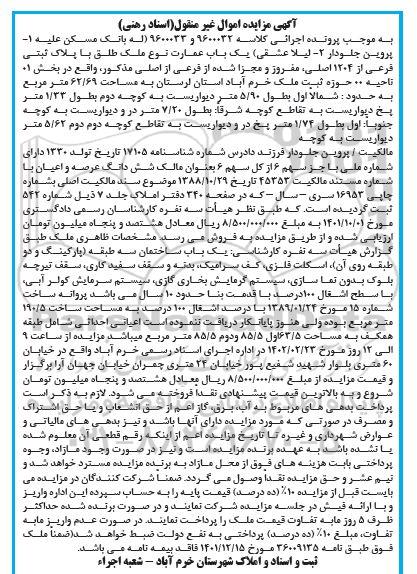 آگهی مزایده اموال غیر منقول(اسناد رهنی)
به موجب پرونده اجرائی کلاسه ۹۶۰۰۰۳۲ و ۹۶۰۰۰۳۳ (له بانک مسکن علیه ۱-
پروین جلودار ۲- لیلا عشقی) یک باب عمارت نوع ملک طلق با پلاک ثبتی
فرعی از ۱۲۰۴ اصلی، مفروز و مجزا شده از فرعی از اصلی مذکور، واقع در بخش ۰۱
ناحیه ۰۰ حوزه ثبت ملک خرم آباد استان لرستان به مساحت ۶۲/۶۹ متر مربع
به حدود : شمالا اول بطول ۵/۹۰ متر دیواریست به کوچه دوم بطول ۱/۳۳ متر
پخ دیواریست به تقاطع کوچه شرقا: بطول ۷/۲۰ متر در و دیواریست به کوچه
جنوبا: اول بطول ۱/۷۴ متر پخ در و دیواریست به تقاطع کوچه دوم دوم ۵/۶۲ متر
دیواریست به کوچه
مالکیت / پروین جلودار فرزند دادرس شماره شناسنامه ۱۷۱۰۵ تاریخ تولد ۱۳۳۰ دارای
شماره ملی با جز سهم ۶ از کل سهم ۶ بعنوان مالک شش دانگ عرصه و اعیان با
شماره مستند مالکیت ۴۵۳۵۳ تاریخ ۱۳۸۸/۱۰/۲۹ موضوع سند مالکیت اصلی بشماره
چاپی ۱۶۹۵۳ سری – سال – که در صفحه ۳۴۰ دفتر املاک جلد ۷ ذیل شماره ۵۴۲
ثبت گردیده است. که طبق نظر هیأت سه نفره کارشناسان رسمی دادگستری
مورخ ۱۴۰۱/۱۰/۰۱ به مبلغ ۸/۵۰۰/۰۰۰/۰۰۰ ریال معادل هشتصد و پنجاه میلیون تومان
ارزیابی شده و از طریق مزایده به فروش می رسد. مشخصات ظاهری ملک طبق
گزارش هیأت سه نفره کارشناسی: یک باب ساختمان سه طبقه (پارکینگ و دو
طبقه روی آن)، اسکلت فلزی، کف سرامیک، بدنه و سقف سفید کاری، سقف تیرچه
بلوک بدون نما سازی، سیستم گرمایش بخاری گازی، سیستم سرمایش کولر آبی،
با سطح اشغال ۱۰۰درصد با قدمت بنا حدود ۱۰ سال می باشد پروانه ساخت
شماره ۱۵ مورخ ۱۳۸۹/۰۱/۲۴ با درصد اشغال ۱۰۰ درصد به مساحت ساخت ۱۹۰/۵
متر مربع بوده ولی هنوز پایانکار دریافت ننموده است اعیانی احداثی شامل طبقه
همکف به مساحت ۶۳/۵اول ۸۵/۵ ودوم ۸۵/۵ متر مربع میباشد مزایده از ساعت ۹
الی ۱۲ روز مورخ ۱۴۰۲/۰۲/۲۳ در اداره اجرای اسناد رسمی خرم آباد واقع در خیابان
۶۰ متری بلوار شهید شفیع پور خیابان ۲۴ متری چمران خیابان جهان آرا برگزار
و قیمت مزایده از مبلغ ۸/۵۰۰/۰۰۰/۰۰۰ ریال معادل هشتصد و پنجاه میلیون تومان
شروع و به بالاترین قیمت پیشنهادی نقدا فروخته می شود. لازم به ذکر است
پرداخت بدهی های مربوط به آب، برق، گاز اعم از حق انشعاب و یا حق اشتراک
و مصرف در صورتی که مورد مزایده دارای آنها باشد و نیز بدهی های مالیاتی و
عوارض شهرداری و غیره تا تاریخ مزایده اعم از اینکه رقم قطعی آن معلوم شده
یا نشده باشد، به عهده برنده مزایده است و نیز در صورت وجود مازاد، وجوه
پرداختی بابت هزینه های فوق از محل مازاد به برنده مزایده مسترد خواهد شد و
نیم عشر و حق مزایده نقدا وصول می گردد. ضمنا شرکت کنندگان در مزایده می
بایست قبل از مزایده ۱۰٪ (ده درصد) قیمت پایه را به حساب سپرده این اداره واریز
و با ارائه فیش در جلسه مزایده شرکت نمایند و در صورت برنده شده حداکثر
ظرف ۵ روز مابه تفاوت قیمت ملک را پرداخت نمایند. در صورت عدم واریز مابه
تفاوت، مبلغ ۱۰٪ (ده درصد) پرداختی به نفع دولت ضبط خواهد شد(ضمناً ملک
فوق طبق نامه ۳۶۰۰۹۱۳۵ مورخ ۱۴۰۱/۱۲/۱۵ فاقد بیمه نامه می باشد.
ثبت و اسناد و املاک شهرستان خرم آباد – شعبه اجراء